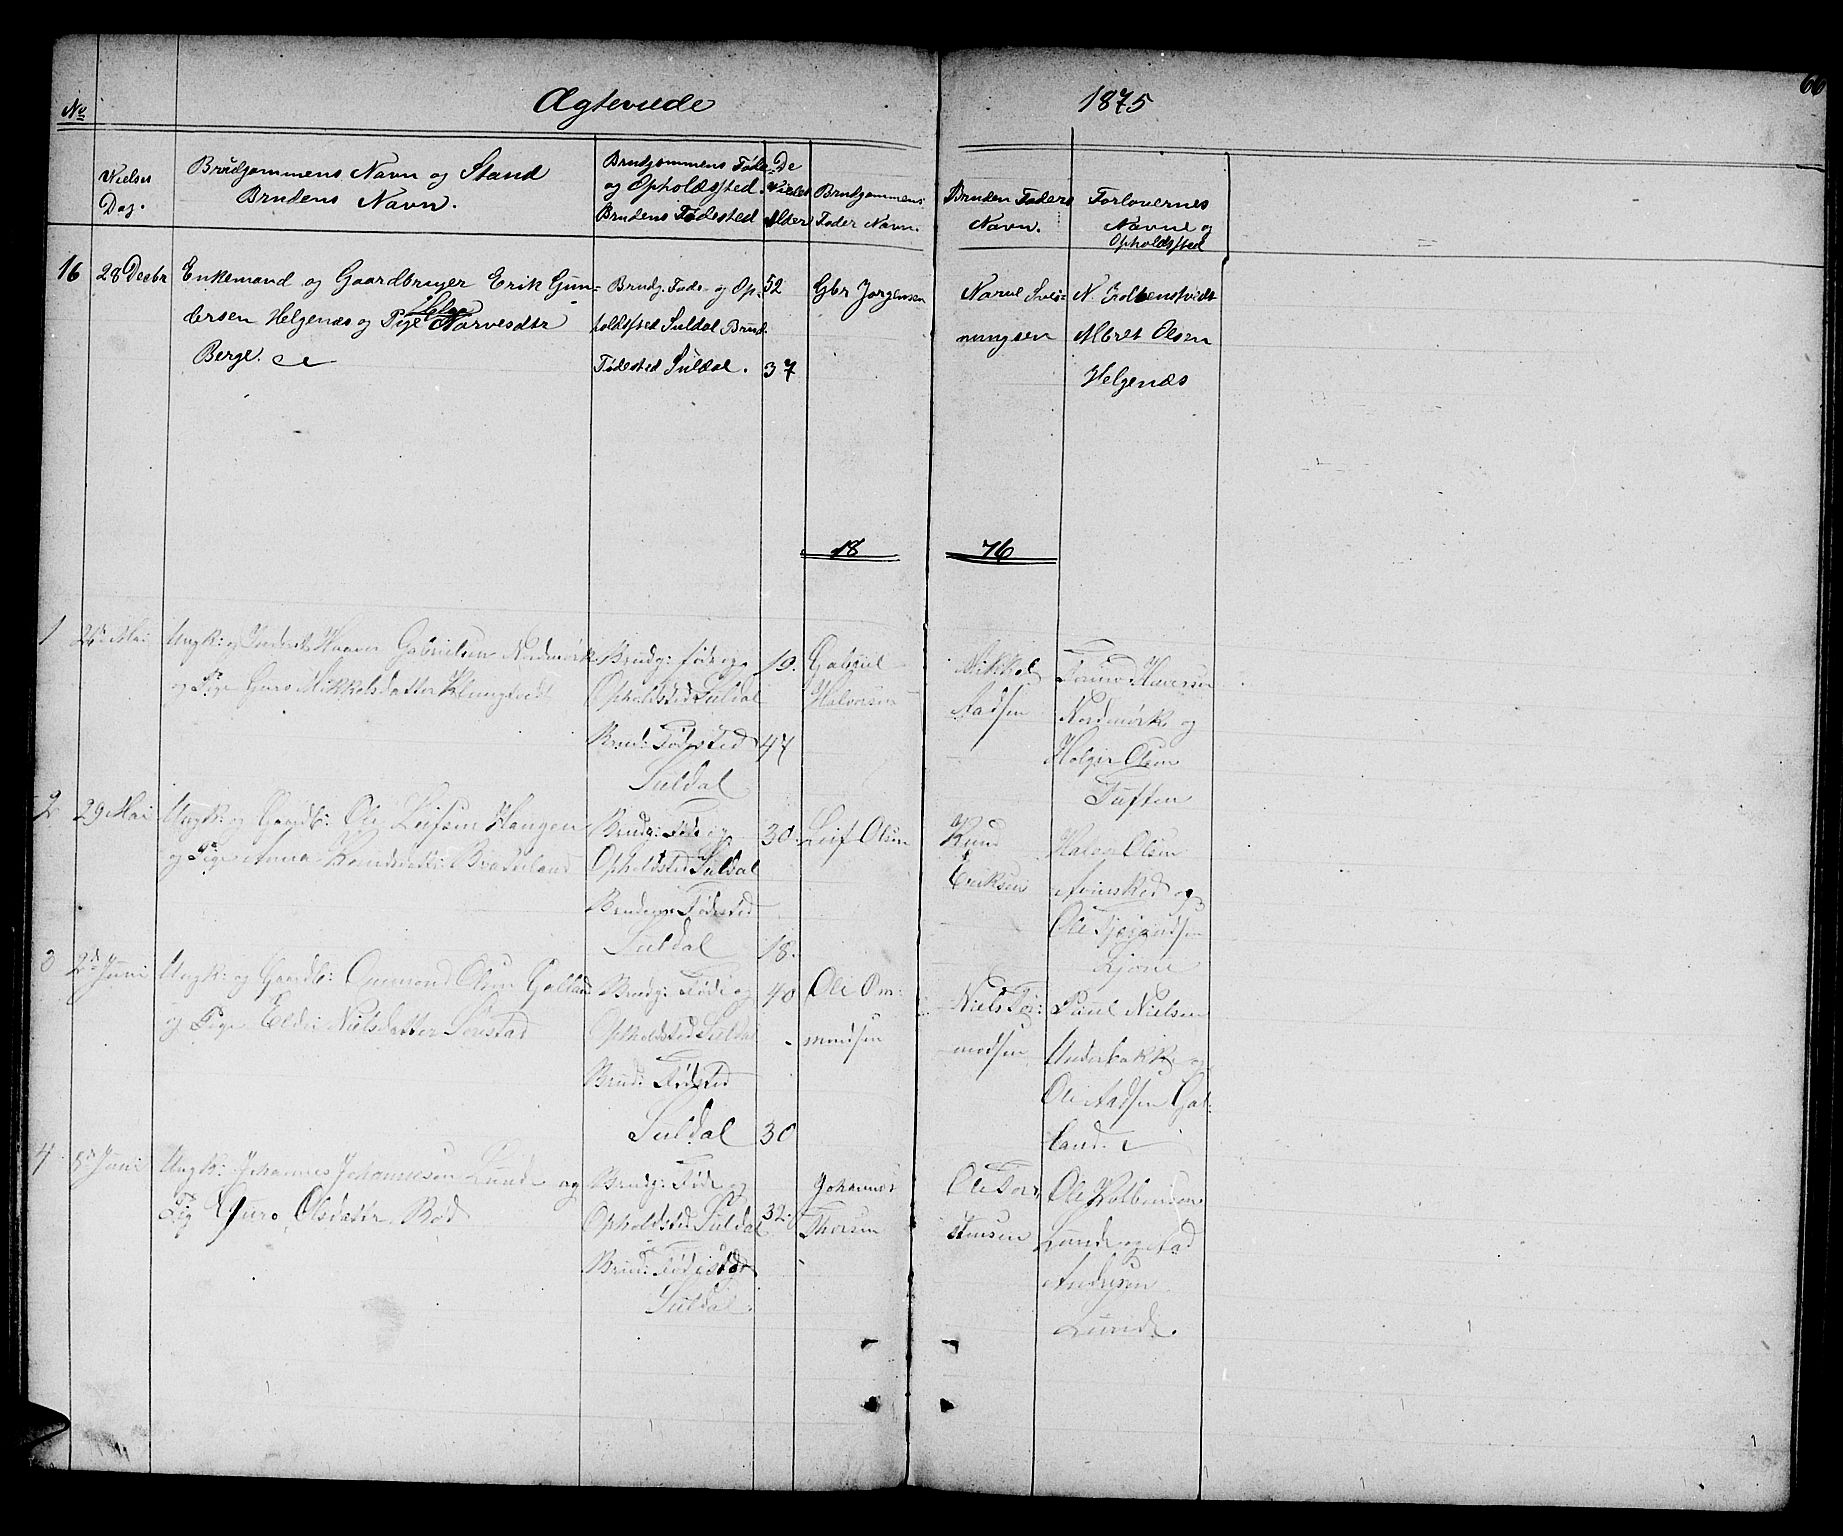 Ægteviede 1875 66
No
Vielses
Dag.
Brudgommens Navn og Stand
Brudens Navn.
Brudgommens Føde-
og Opholdssted.
Brudens Fødested
De
Vieles
Alder
Brudgommens
Fader Navn.
Bruden Faders
Navn.
Forlovernes
Navne og
Opholdssted
16 28 Decbr
Enkemand og Gaardbruger Erik Gun-
bersen Helgenæs og Pige Helga Narvesdtr
Berge.
Brudg. Føde- og Op-
holdssted Suldal Brud.
Fødested Suldal.
52
37
Gbr Jorgensen
Narve Svei-
nungsen
N. Kolbenstvedt
Albret Olsen
Helgenæs
18 76
1 26 Mai
Ungk: og Gabrielsen Nordmørk
og Pige Guro Mikkelsdatter Klungtvedt
Brudg: føde og
Opholdsted Suldal
Brud: Fødested
Suldal
19.
47
Gabriel
Halvorsen
Mikkel
Aadsen
Halvorsen
Nordmørk og
Holger Olsen
Tuften
2 29 Mai
Ungk: og Gaardb: Ole Leifsen Haugen
og Pige Anna Knudsdatter
Brudg: Føde og
Opholdsted Suldal
Brudens Fødested
Suldal
30.
18.
Leif Olsen
Knud
Eriksen
Halvor Olsen
og
Ole
3 2d Juni
Ungk: og Gaardb: Gunmond Olsen Galland
og Pige Eldri Nielsdatter
Brudg: Føde og
Opholdsted Suldal
Brud: Fødested
Suldal
40
30
Ole Om-
mundsen
Niels Tor-
modsen
Paul Nielsen
Underbakke og
Ole Aadsen Gal-
land.
4 5d Juni
Ungk: Johannes Johannesen Lunde og
Pig Guro Olsdattr. Rød
Brudg: Føde og
Opholdsted Suldal
Brud: Fødested
Suldal.
32.
Johannes
Thorsen
Ole Tor-
stensen
Ole Kolbensen
Lunde og Aad
Andersen
Lunde.